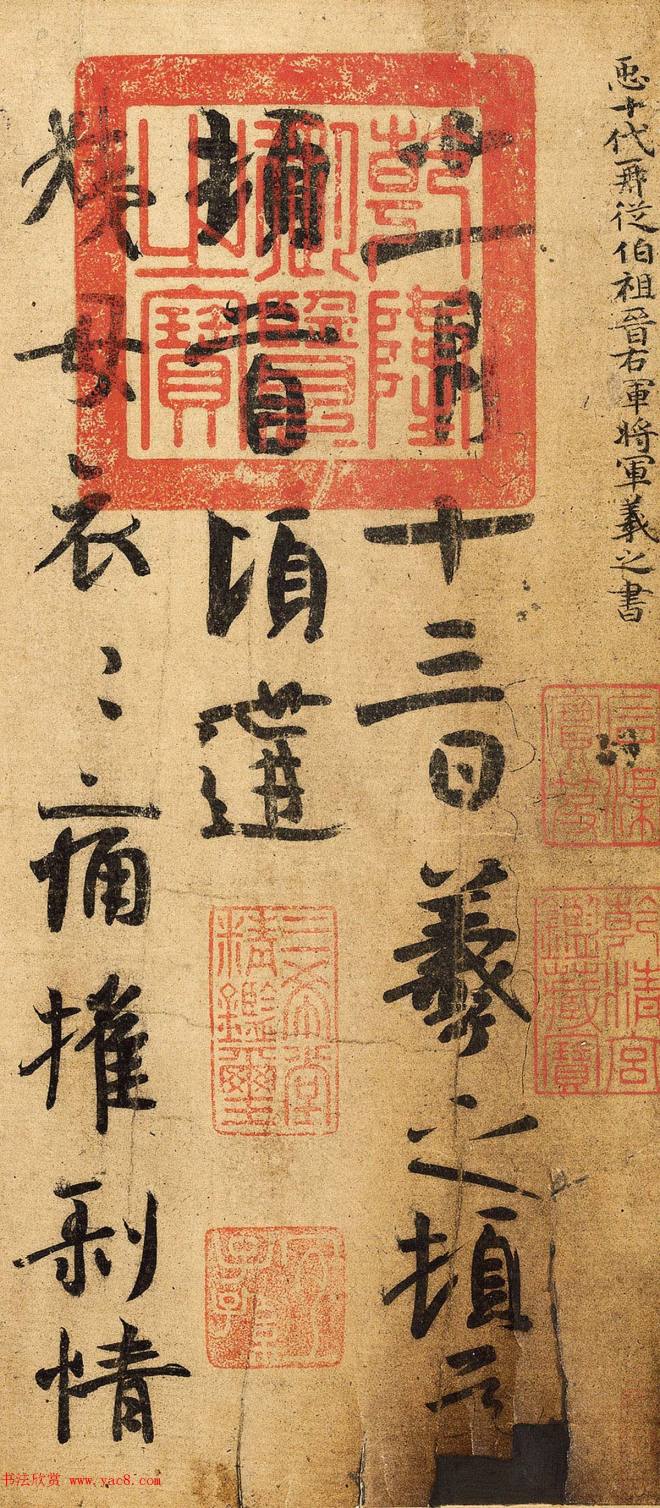 𢘑十代再從伯祖晉右軍將軍羲之書
十一月十三日羲之頓首
頓首頃遘
姨母哀〻痛摧剝情
乾隆御覽之寶
石渠寶笈
乾清宮鑑藏寶
三希堂精鑑璽
宜子孫
书法欣赏 www.yac8.com